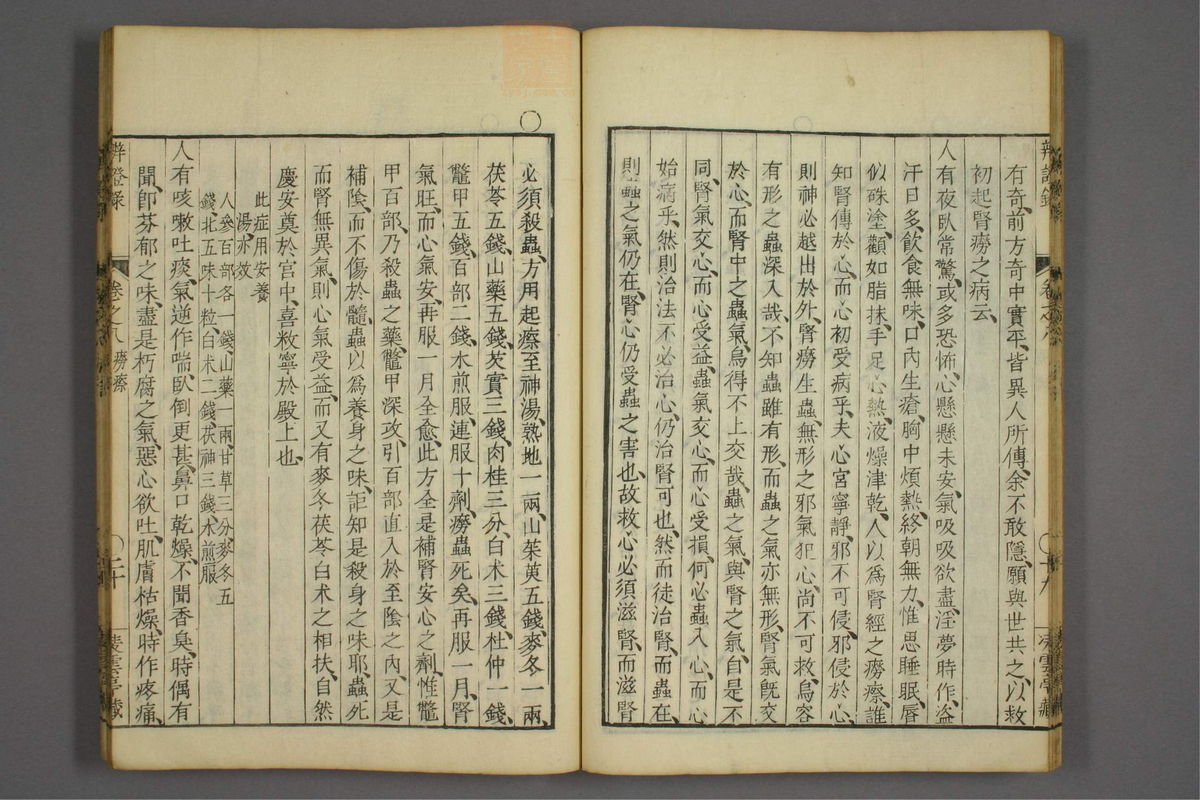 有奇、前方奇中實平、皆異人所傳、余不敢隱、願與世共之、以救
初起腎癆之病云、
人有夜臥常驚、或多恐怖、心懸懸未安、氣吸吸欲盡、淫夢時作、盜
汗日多、飲食無味、口內生瘡、胸中煩熱、終朝無力、惟思睡眠、唇
似硃塗、顴如脂抹、手足心熱、液燥津乾、人以爲腎經之癆瘵、誰
知腎傳於心、而心初受病乎、夫心宮寧靜、邪不可侵、邪侵於心、
則神必越出於外、腎癆生蟲、無形之邪氣犯心、尚不可救、烏容
有形之蟲深入哉、不知蟲雖有形、而蟲之氣亦無形、腎氣旣交
於心、而腎中之蟲氣、烏得不上交哉、蟲之氣、與腎之氣、自是不
同、腎氣交心、而心受益、蟲氣交心、而心受損、何必蟲入心、而心
始病乎、然則治法不必治心、仍治腎可也、然而徒治腎、而蟲在
則蟲之氣仍在、腎心仍受蟲之害也、故救心必須滋腎、而滋腎
辨證錄 卷之八 〇十九 凌雲亭藏
必須殺蟲、方用起瘵至神湯、熟地一兩、山茱萸五錢、麥冬一兩、
茯苓五錢、山藥五錢、芡實三錢、肉桂三分、白朮三錢、杜仲一錢、
鼈甲五錢、百部二錢、水煎服、連服十劑、癆蟲死矣、再服一月、腎
氣旺、而心氣安、再服一月全愈、此方全是補腎安心之劑、惟鼈
甲百部、乃殺蟲之藥、鼈甲深攻、引百部直入於至陰之內、又是
補陰、而不傷於髓、蟲以爲養身之味、詎知是殺身之味耶、蟲死
而腎無異氣、則心氣受益、而又有麥冬茯苓白朮之相扶、自然
慶安奠於宮中、喜敉寧於殿上也、
此症用安養
湯亦效
人參百部各一錢、山藥一兩、甘草三分、麥冬五
錢、北五味十粒、白朮二錢、茯神三錢、水煎服
人有咳嗽吐痰、氣逆作喘、臥倒更甚、鼻口乾燥、不聞香臭、時偶有
聞、卽芬郁之味、盡是朽腐之氣、惡心欲吐、肌膚枯燥、時作疼痛、
辨證錄 卷之八 癆瘵 〇二十 凌雲亭藏